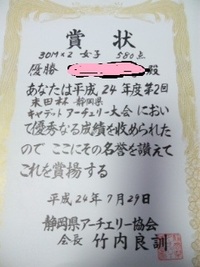 賞状
30m×2 女子 580点
優勝 殿
あなたは平成24年度第2回
東田杯静岡県
キャデットアーチェリー大会において
優秀なる成績を収められた
ので ここにその名誉を讃えて
これを賞揚する
平成24年7月29日
静岡県アーチェリー協会
会長 竹内良訓